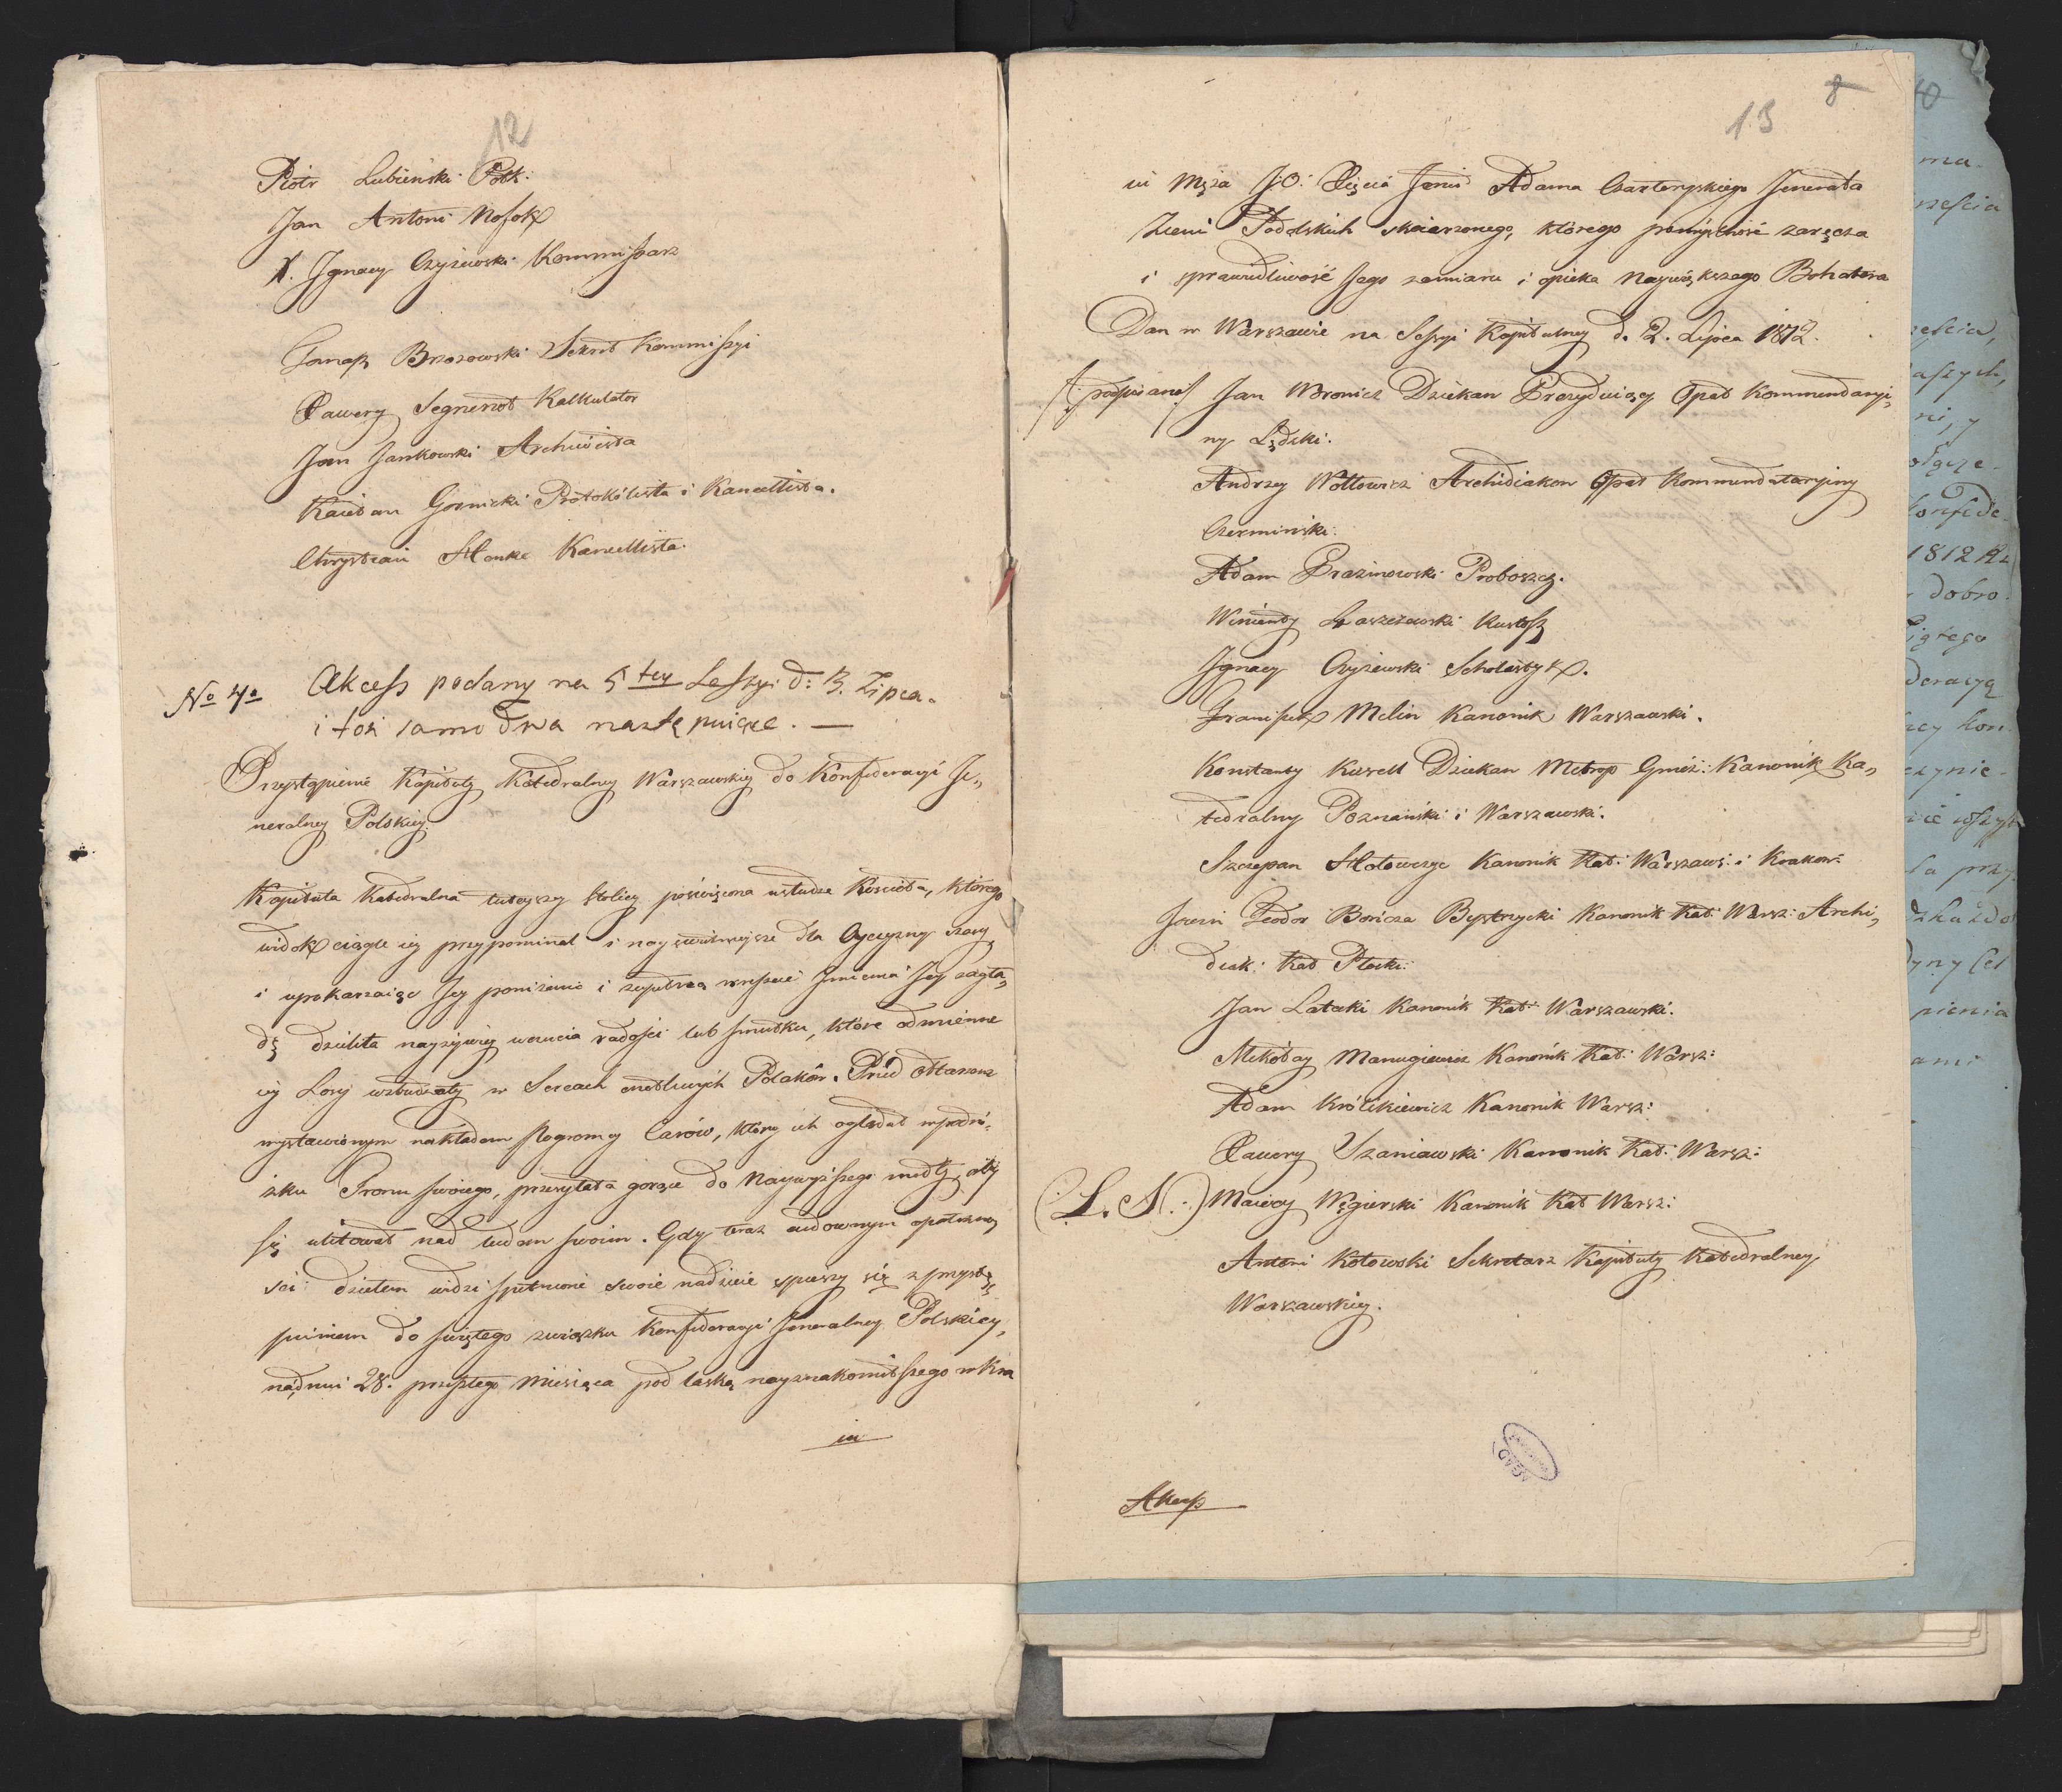 12
Piotr Lubieński Półk:
Jan Antoni Nosok
X. Ignacy Czyżewski Kommissarz
Tomasz Brzozowski Sekret Kommissyi
Xawery Segnenot Kalkulator
Jan Jankowski Archiwista
Kaietan Gornicki Protokólista i Kancellista.
Chrystian Henke Kancellista.
No 4o Akcess podany na 5tey Sessyi d: 3. Lipca.
i toż samo dwa następuiące. —
Przystąpienie Kapituły Katedralney Warszawskiey do Konfederacyi Je„
neralney Polskiey.
Kapituła Katedralna tuteyszey Stolicy poświęcona usłudze Kościoła, którego
widok ciągle iey przypominał i nayświetnieysze dla Oyczyzny czasy
i upokarzaiące Jey poniżenie i zupełną wreszcie Imienia Jey zagła„
dę dzieliła nayżywiey uczucia radości lub smutku, które odmienne
iey Losy wzbudzały w Sercach cnotliwych Polaków. Przed Ołtarzem
wystawionym nakładem Pogromcy Carów, który ich oglądał w podnó„
żku Tronu swoiego, przesyłała gorące do Naywyższego modły, aby
się ulitował nad ludem swoim. Gdy teraz cudownym opatrzno„
sci dziełem widzi spełnione swoie nadzieie spieszy się z przystą„
pieniem do świętego związku Konfederacyi Jeneralney Polskiey,
na dniu 28. przeszłego Miesiąca pod laską nayznakomitszego w Kra
iu
8
13
iu Męża J:O: Xięcia Jmci Adama Czartoryskiego Jenerała
Ziemi Podolskich skoiarzonego, którego pomyślność zaręcza
i sprawiedliwość Jego zamiaru i opieka Naywiększego Bohatera
Dan w Warszawie na Sessyi Kapitulney d. 2. Lipca 1812.
/:podpisano:/ Jan Wronicz Dziekan Prezyduiący Opat Kommendaryi„
ny Lędzki.
Andrzey Wołłowicz Archidiakon Opat Kommendataryiny
Czermiński.
Adam Prazmowski Proboszcz.
Wincenty Łaszczewski Kustosz
Ignacy Czyżewski Scholastyk.
Franiszek Melin Kanonik Warszawski.
Konstanty Kurell Dziekan Metrop Gnież: Kanonik Ka„
tedralny Poznański i Warszawski.
Szczepan Hołowczyc Kanonik Kat: Warszaws: i Krakow:
Teodor Bończa Bystrzycki Kanonik Kat: Warsz: Archi„
diak: Kat Płocki.
Jan Łatecki Kanonik Kat: Warszawski.
Mikołay Manugiewicz Kanonik Kat: Warsz:
Adam Królikiewicz Kanonik Warsz:
Xawery Szaniawski Kanonik Kat: Warsz:
(L. S.) Maciey Węgierski Kanonik Kat Warsz:
Antoni Kotowski Sekretarz Kapituły Katedralney
Warszawskiey.
Akcess
AGAD